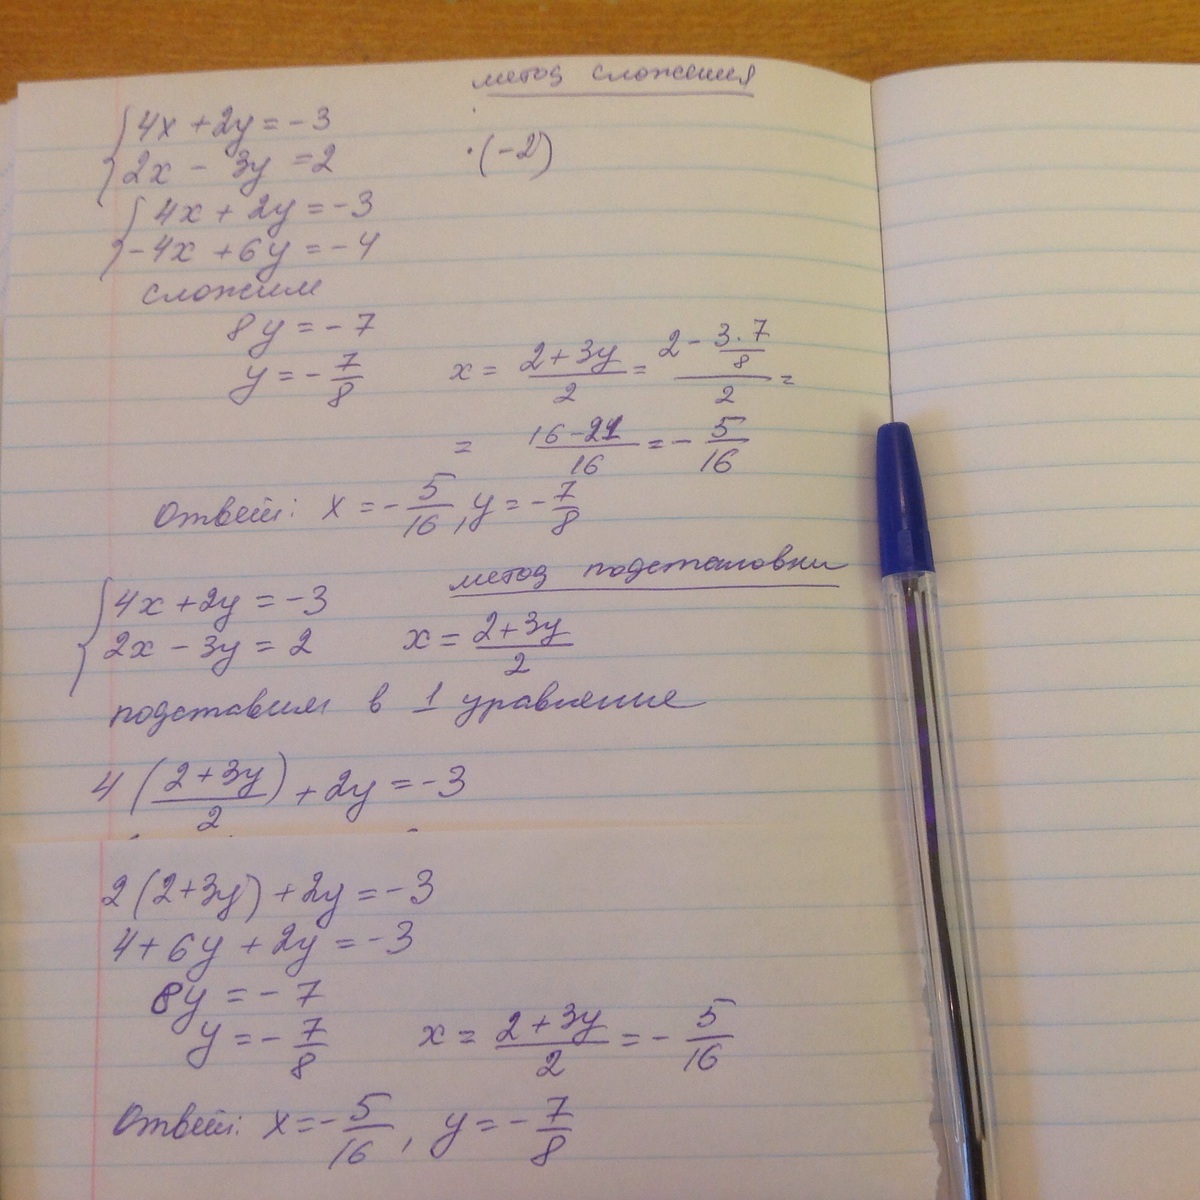 метод сложения
4x + 2y = -3
2x - 3y = 2 ·(-2)
4x + 2y = -3
-4x + 6y = -4
сложим
8y = -7
y = -7/8 x = (2 + 3y)/2 = (2 - 3·7/8)/2 =
= (16 - 21)/16 = -5/16
Ответ: x = -5/16, y = -7/8
метод подстановки
4x + 2y = -3
2x - 3y = 2 x = (2 + 3y)/2
подставим в 1 уравнение
4((2 + 3y)/2) + 2y = -3
2(2 + 3y) + 2y = -3
4 + 6y + 2y = -3
8y = -7
y = -7/8 x = (2 + 3y)/2 = -5/16
Ответ: x = -5/16, y = -7/8